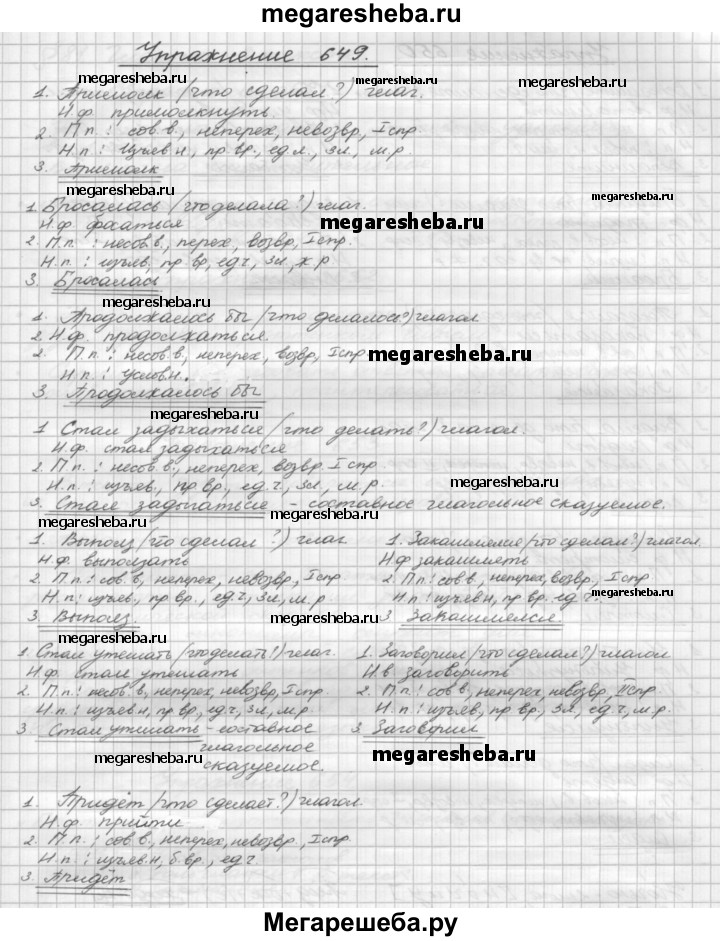 megaresheba.ru
Упражнение 649.
megaresheba.ru
megaresheba.ru
1. Примолк (что сделал?) глаг.
Н.ф. примолкнуть.
2. П.п.: сов.в., неперех, невозвр, I спр.
Н.п.: Изъяв н, пр вр., ед.л., 3л, м.р
3. Примолк
megaresheba.ru
megaresheba.ru
1. Бросалась (что делала?) глаг.
Н.ф
megaresheba.ru
2. П.п.: несов.в., перех, возвр, I спр.
Н.п.: изъяв, пр вр, ед ч, 3л, ж.р.
3. Бросалась
megaresheba.ru
1. Продолжалось бы (что делалось?) глагол
2. Н.ф. продолжаться.
2. П.п.: несов.в, неперех, возвр, I спр
megaresheba.ru
Н.п.: Условн.
3. Продолжалось бы
megaresheba.ru
1 Стал задыхаться (что делать?) глагол.
Н.ф. стал задыхаться
2. П.п.: несов.в., неперех, возвр. I спр
Н.п.: изъяв., пр вр., ед.ч., 3л., м.р.
megaresheba.ru
3. Стал задыхаться - составное глагольное сказуемое.
megaresheba.ru
1. Выполз (что сделал?) глаг
Н.ф. выползать
2. П.п.: сов в., неперех, невозвр., I спр.
Н.п.: изъяв., пр вр., ед.ч, 3л, м.р
3. Выполз.
1. Закашлялся (что сделал?) глагол.
Н.ф закашлять
2. П.п.: сов в, неперех, возвр., I спр.
Н.п.: изъяв н, пр вр, ед ч.
megaresheba.ru
3. Закашлялся.
megaresheba.ru
1 Стал утешать (что делать?) глаг.
Н.ф. стал утешать
2. П.п.: несов.в, неперех, невозвр, I спр.
Н.п.: изъяв н, пр вр, ед ч, 3л, м.р.
3. Стал утешать - составное
глагольное
сказуемое.
megaresheba.ru
1. Заговорил (что сделал?) глагол
Н.в. заговорить
2. П.п.: сов в, неперех, невозвр, II спр
Н.п.: изъяв, пр вр, 3л, ед ч, м.р.
3. Заговорил
megaresheba.ru
1. Придёт (что сделает?) глагол.
Н.ф. прийти
2. П.п.: сов в., неперех, невозвр, I спр.
Н.п.: изъяв.н, б.вр., ед ч
megaresheba.ru
3. Придёт
Мегарешеба.ру